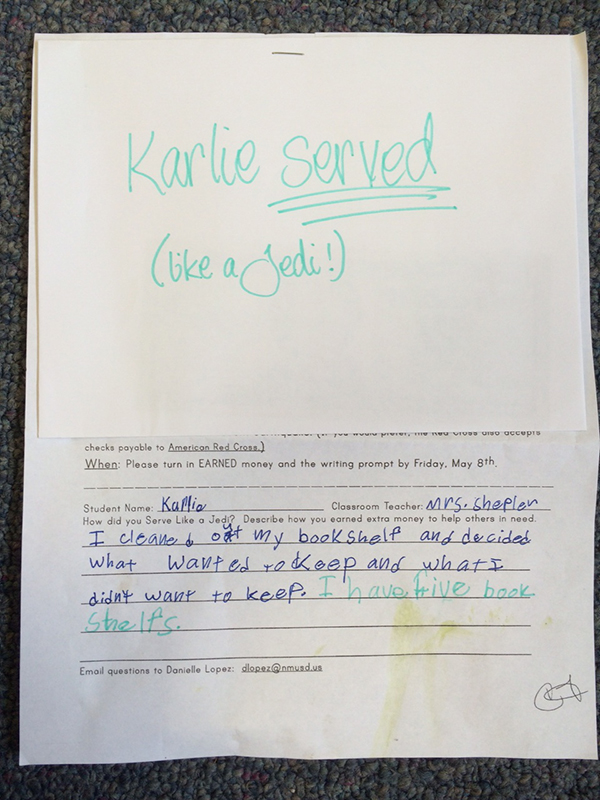 Karlie served
(like a Jedi!)
the Red Cross also accepts
checks payable to American Red Cross.)
When: Please turn in EARNED money and the writing prompt by Friday, May 8th.
Student Name: Karlie Classroom Teacher: Mrs. Shepler
How did you Serve Like a Jedi? Describe how you earned extra money to help others in need.
I cleaned out my bookshelf and decided
what wanted to keep and what I
didn't want to keep. I have five book
shelfs.
Email questions to Danielle Lopez: dlopez@nmusd.us